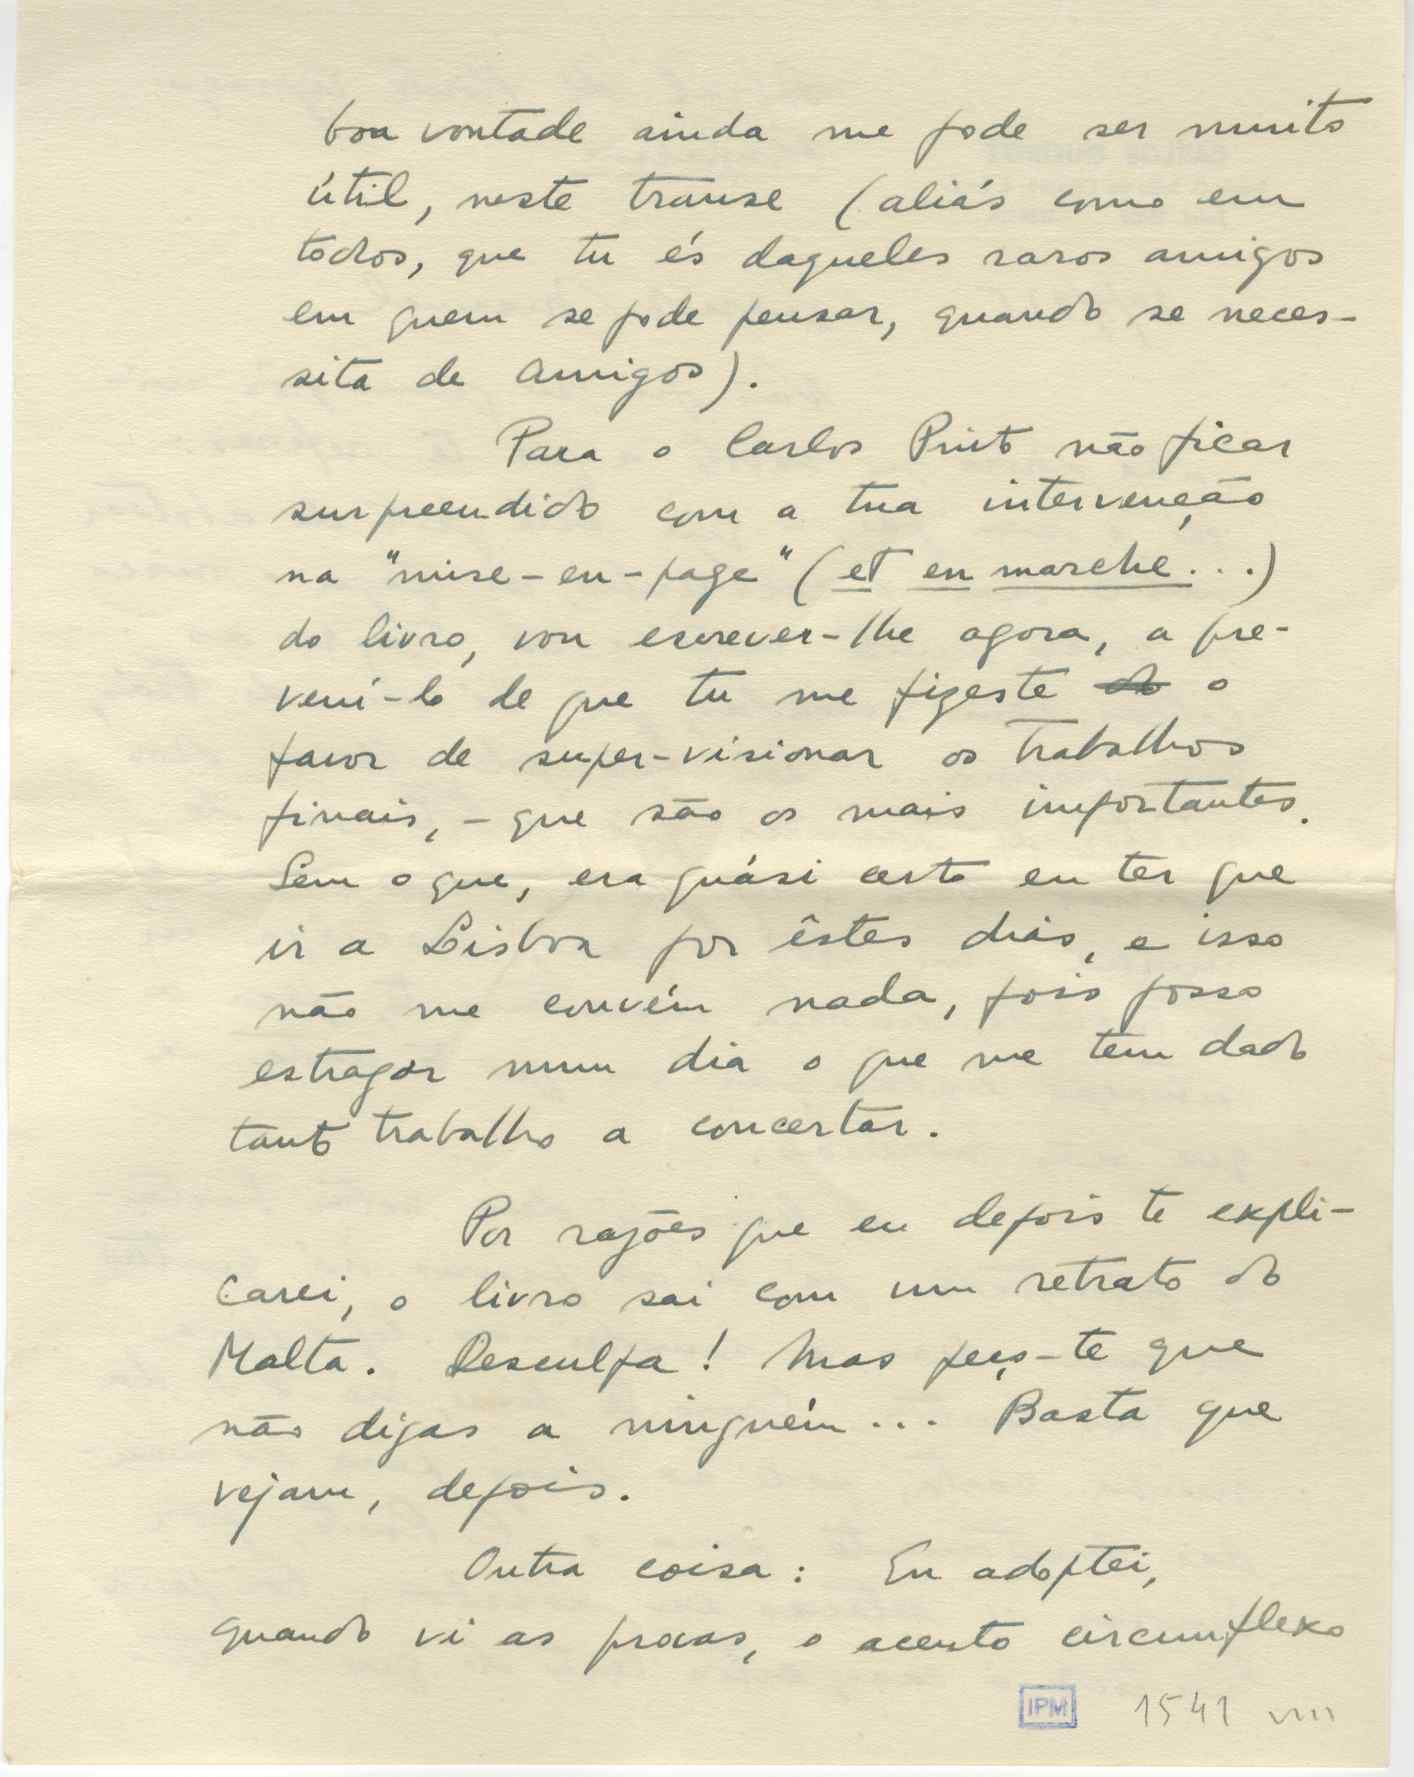 boa vontade ainda me pode ser muito
útil, neste transe (aliás como em
todos, que tu és daqueles raros amigos
em quem se pode pensar, quando se neces-
sita de amigos).
Para o Carlos Pinto não ficar
surpreendido com a tua intervenção
na "mise-en-page" (et en marche...)
do livro, vou escrever-lhe agora, a pre-
vení-lo de que tu me fizeste do o
favor de super-visionar os trabalhos
finais, - que são os mais importantes.
Sem o que, era quási certo eu ter que
ir a Lisboa por êstes dias, e isso
não me convém nada, pois posso
estragar num dia o que me tem dado
tanto trabalho a concertar.
Por razões que eu depois te expli-
carei, o livro sai com um retrato do
Malta. Desculpa! Mas peço-te que
não digas a ninguém... Basta que
vejam, depois.
Outra coisa: Eu adoptei,
quando vi as provas, o acento circumflexo
IPM 1541 VIII